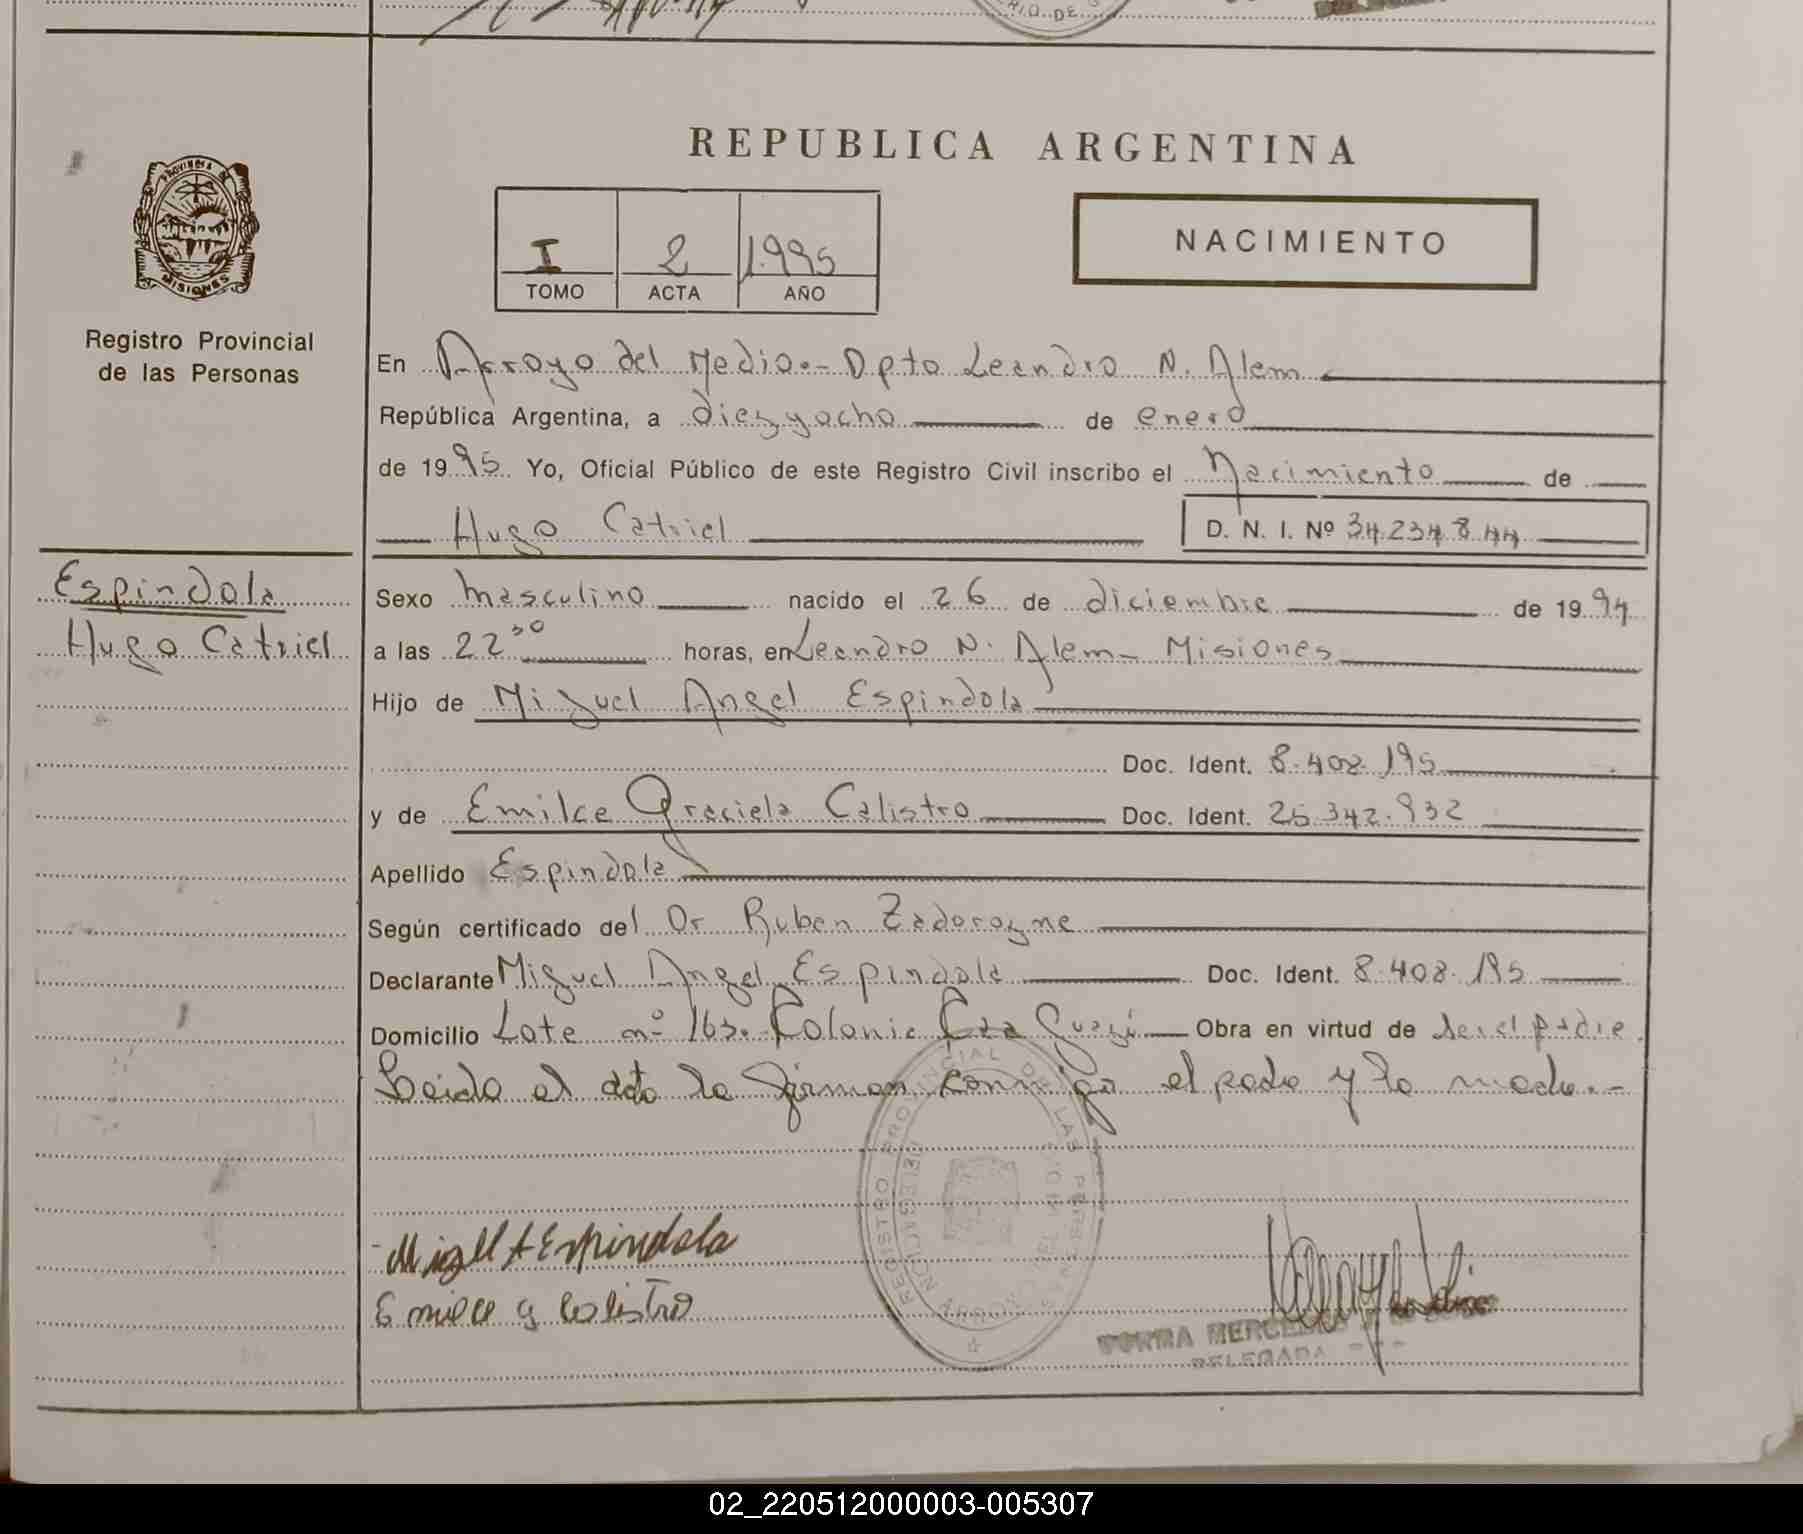 REPUBLICA ARGENTINA
PROVINCIA DE
MISIONES
Registro Provincial
de las Personas
I 2 1.995
TOMO ACTA AÑO
NACIMIENTO
En Arroyo del Medio.- Dpto Leandro N. Alem
República Argentina, a diez y ocho de enero
de 1995 Yo, Oficial Público de este Registro Civil inscribo el Nacimiento de
Hugo Catriel D. N. I. Nº 34.234.844
Espindola
Hugo Catriel
Sexo Masculino nacido el 26 de diciembre de 1994
a las 22 30 horas, en Leandro N. Alem - Misiones
Hijo de Miguel Angel Espindola
Doc. Ident. 8.408.195
y de Emilce Graciela Calistro Doc. Ident. 25.342.932
Apellido Espindola
Según certificado del Dr Ruben Zadorozne
Declarante Miguel Angel Espindola Doc. Ident. 8.408.195
Domicilio Lote nº 163. Colonia Caa Guazú Obra en virtud de ser el padre.
Leida el acta la firman conmigo el padre y la madre.-
REGISTRO PROVINCIAL DE LAS PERSONAS
ARROYO DEL MEDIO
Miguel A Espindola
Emilce G Calistro
NORMA MERCEDES
DELEGADA
02_220512000003-005307